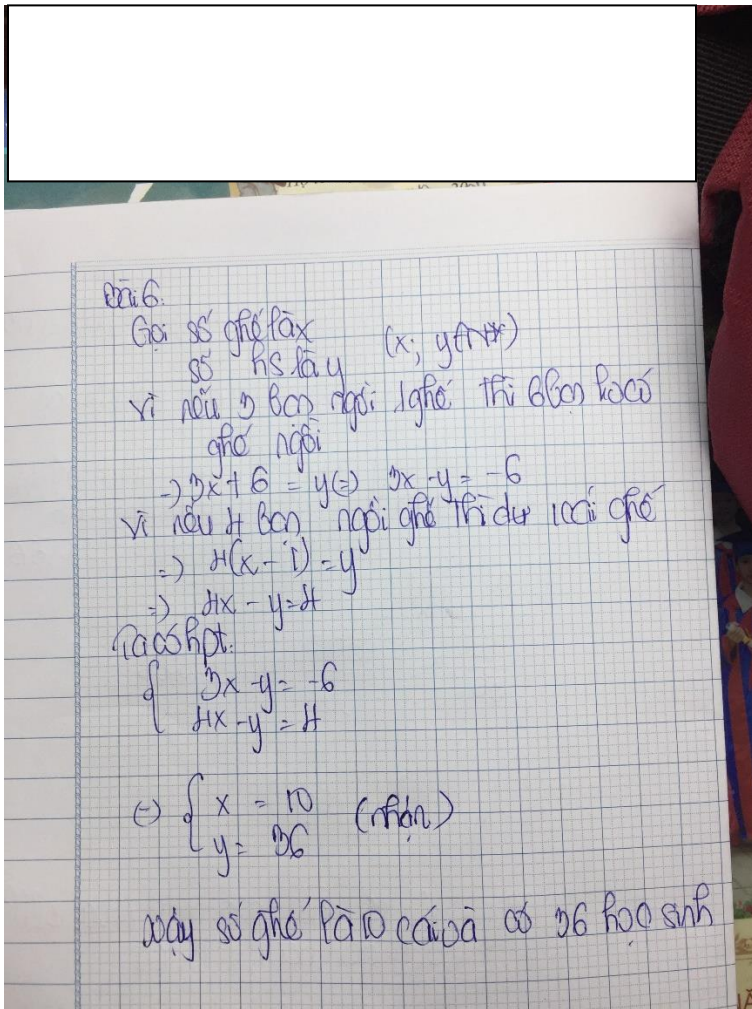 Bài 6.
Gọi số ghế là x
số hs là y (x; y ∈ N*)
Vì nếu 3 bạn ngồi 1 ghế thì 6 bạn ko có
ghế ngồi
=> 3x + 6 = y <=> 3x - y = -6
Vì nếu 4 bạn ngồi ghế thì dư 1 cái ghế
=> 4(x - 1) = y
=> 4x - y = 4
Ta có hpt:
{ 3x - y = -6
4x - y = 4
<=> { x = 10 (nhận)
y = 36
Vậy số ghế là 10 cái và có 36 học sinh